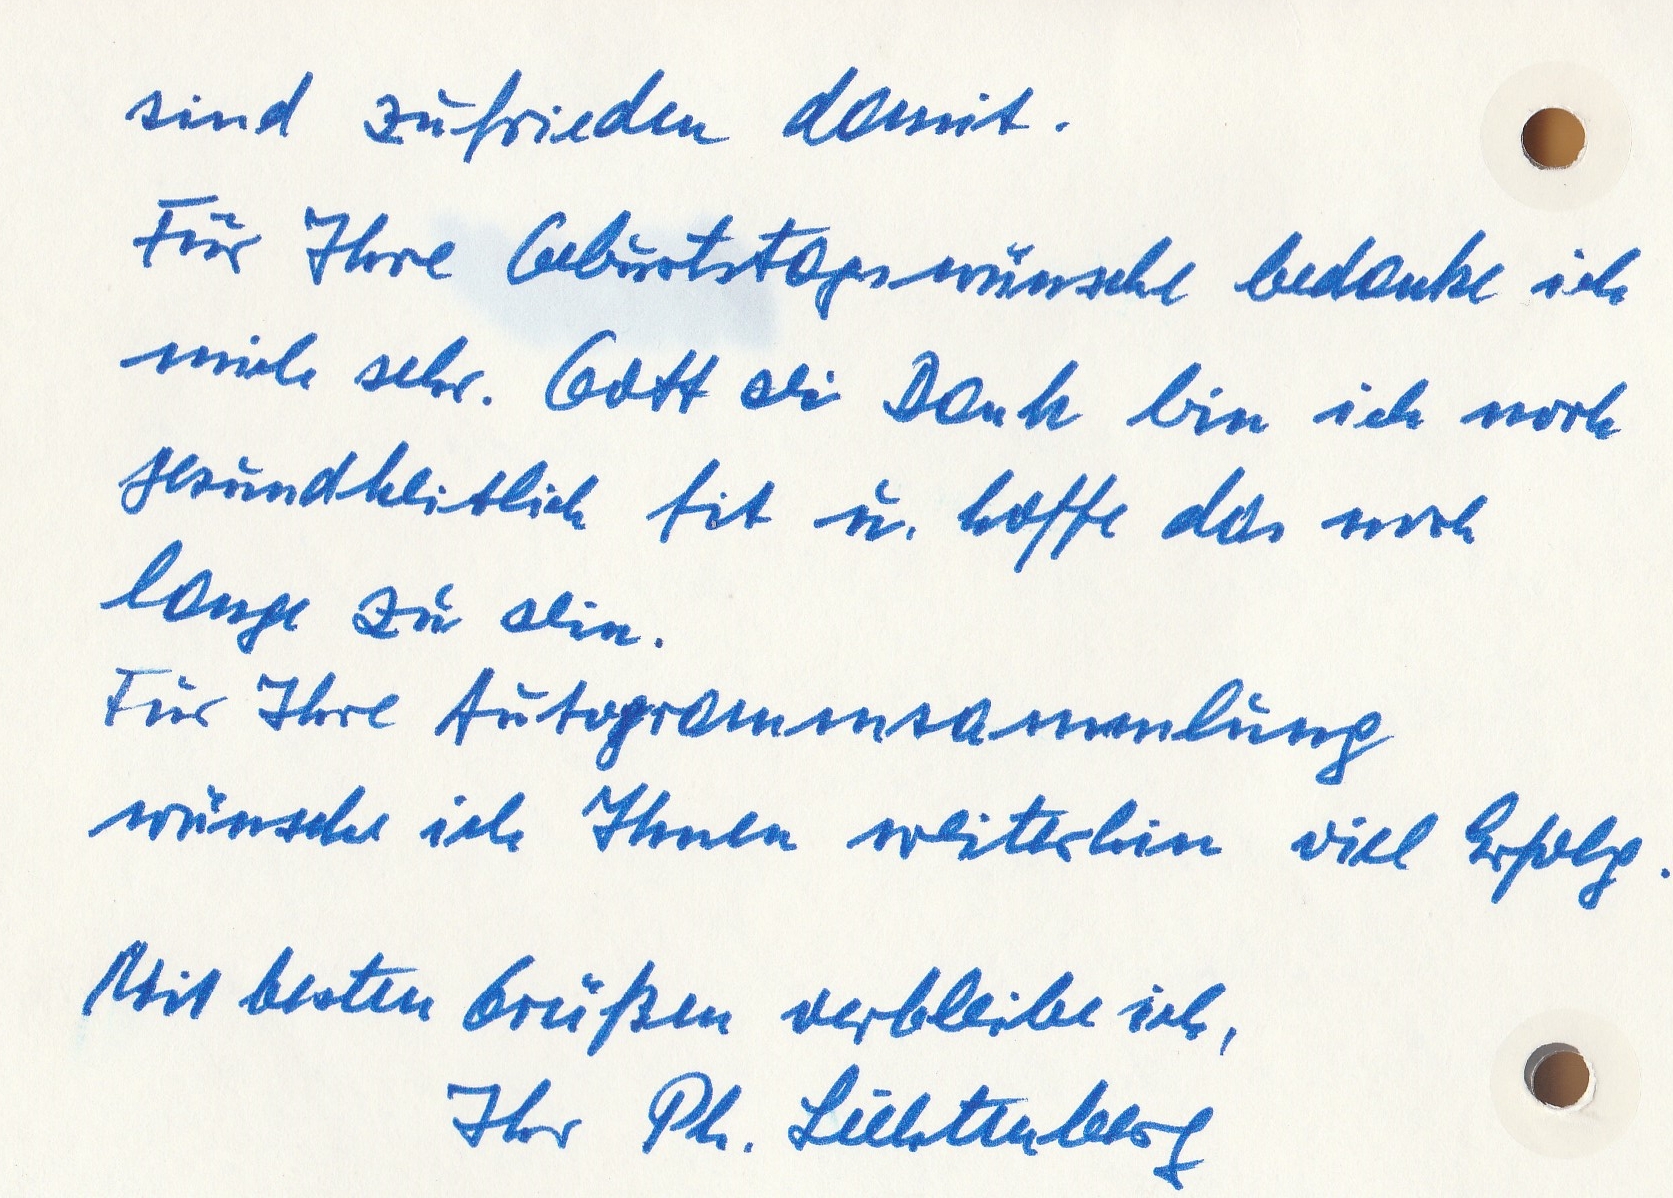 sind zufrieden damit.
Für Ihre Geburtstagswünsche bedanke ich
mich sehr. Gott sei Dank bin ich noch
gesundheitlich fit u. hoffe das noch
lange zu sein.
Für Ihre Autogrammsammlung
wünsche ich Ihnen weiterhin viel Erfolg.
Mit besten Grüßen verbleibe ich,
Ihr Ph. Lichtenberg